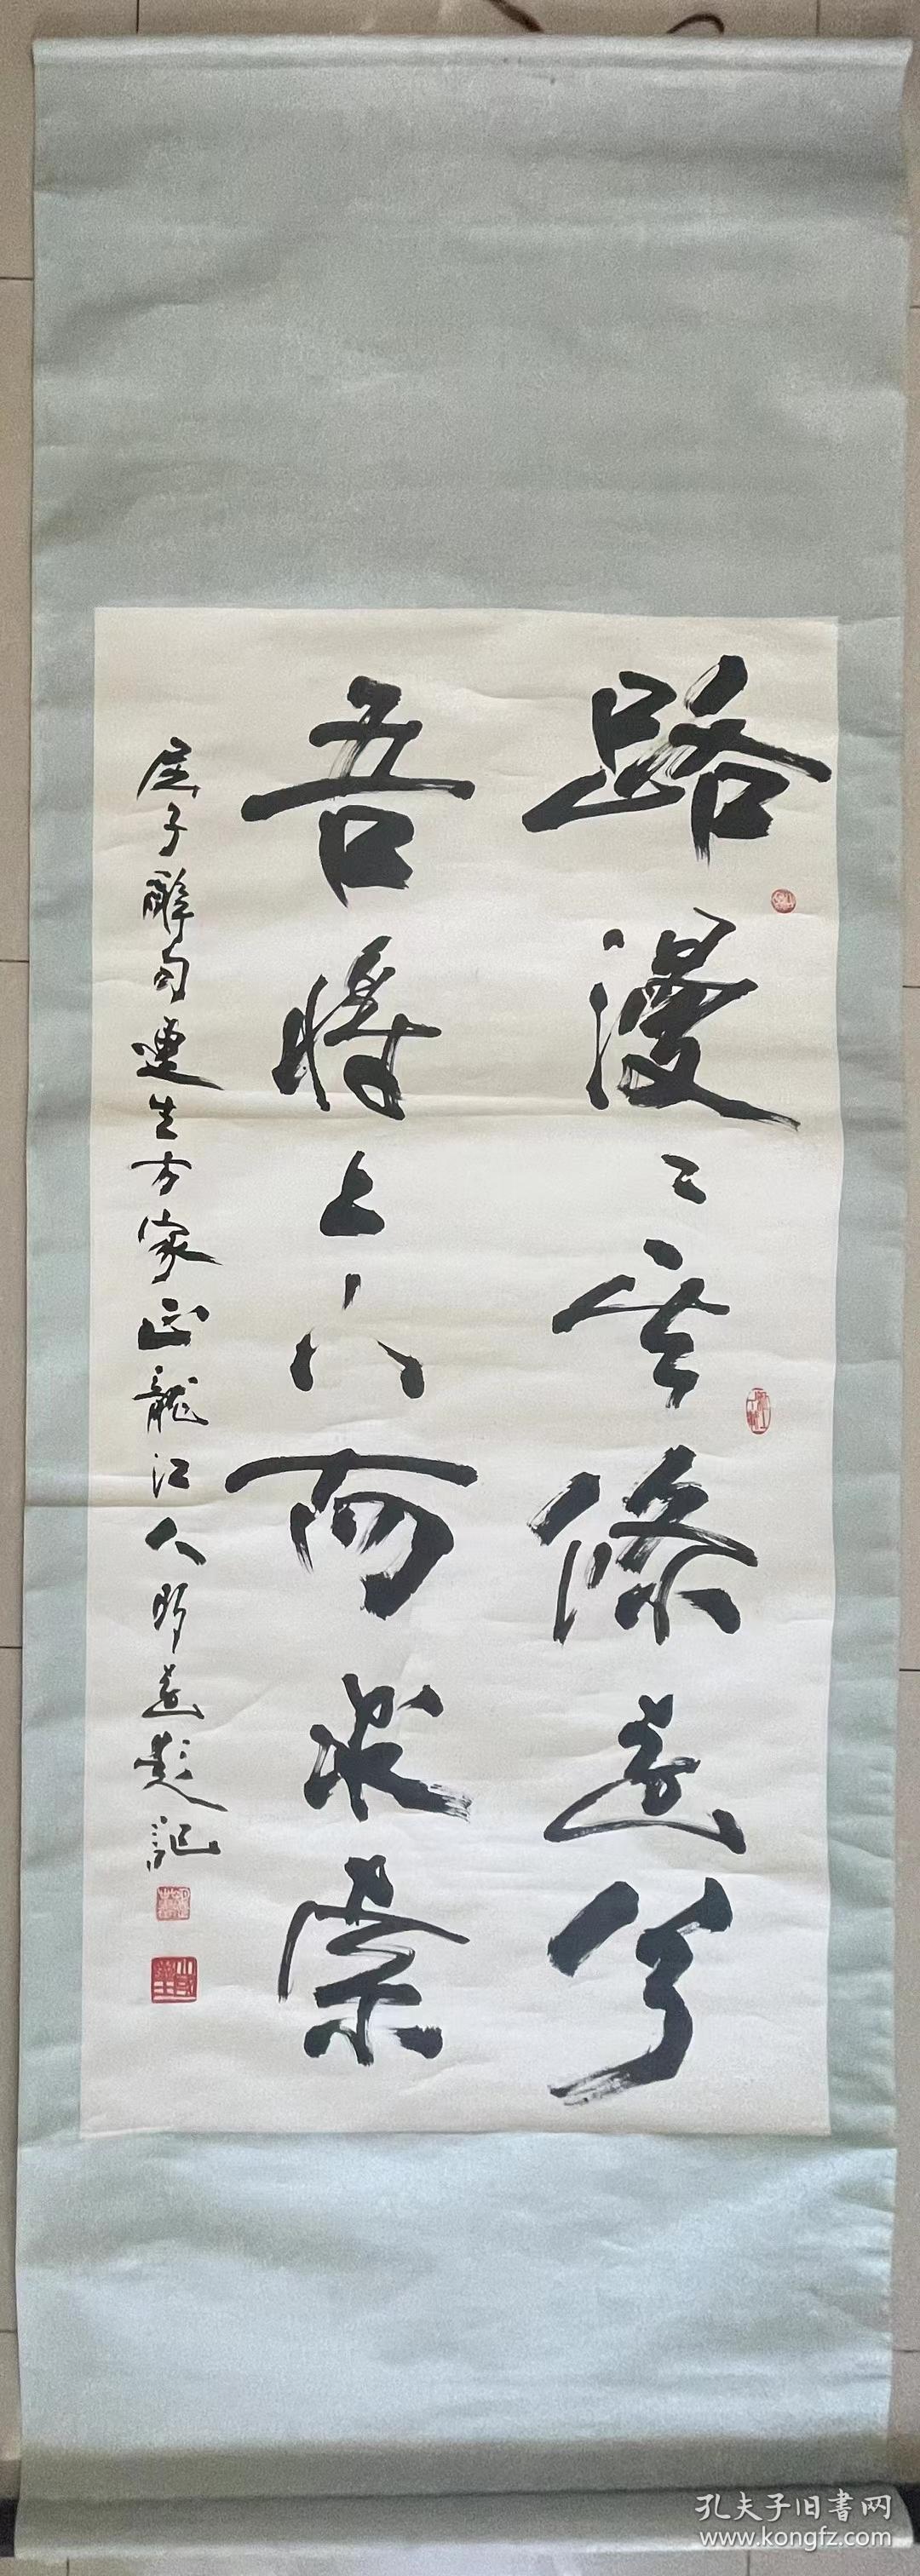 路漫〻其修遠兮
吾將上下而求索
屈子辭句連生方家正龍江人明遠題記
孔夫子旧書网
www.kongfz.com